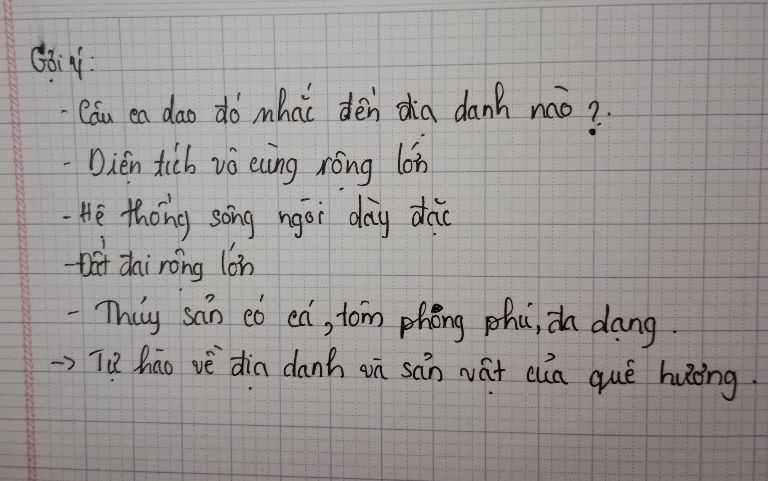 Gợi ý:
- Câu ca dao đó nhắc đến địa danh nào?.
- Diện tích vô cùng rộng lớn
- Hệ thống sông ngòi dày đặc
- Đất đai rộng lớn
- Thủy sản có cá, tôm phong phú, đa dạng.
-> Tự hào về địa danh và sản vật của quê hương.